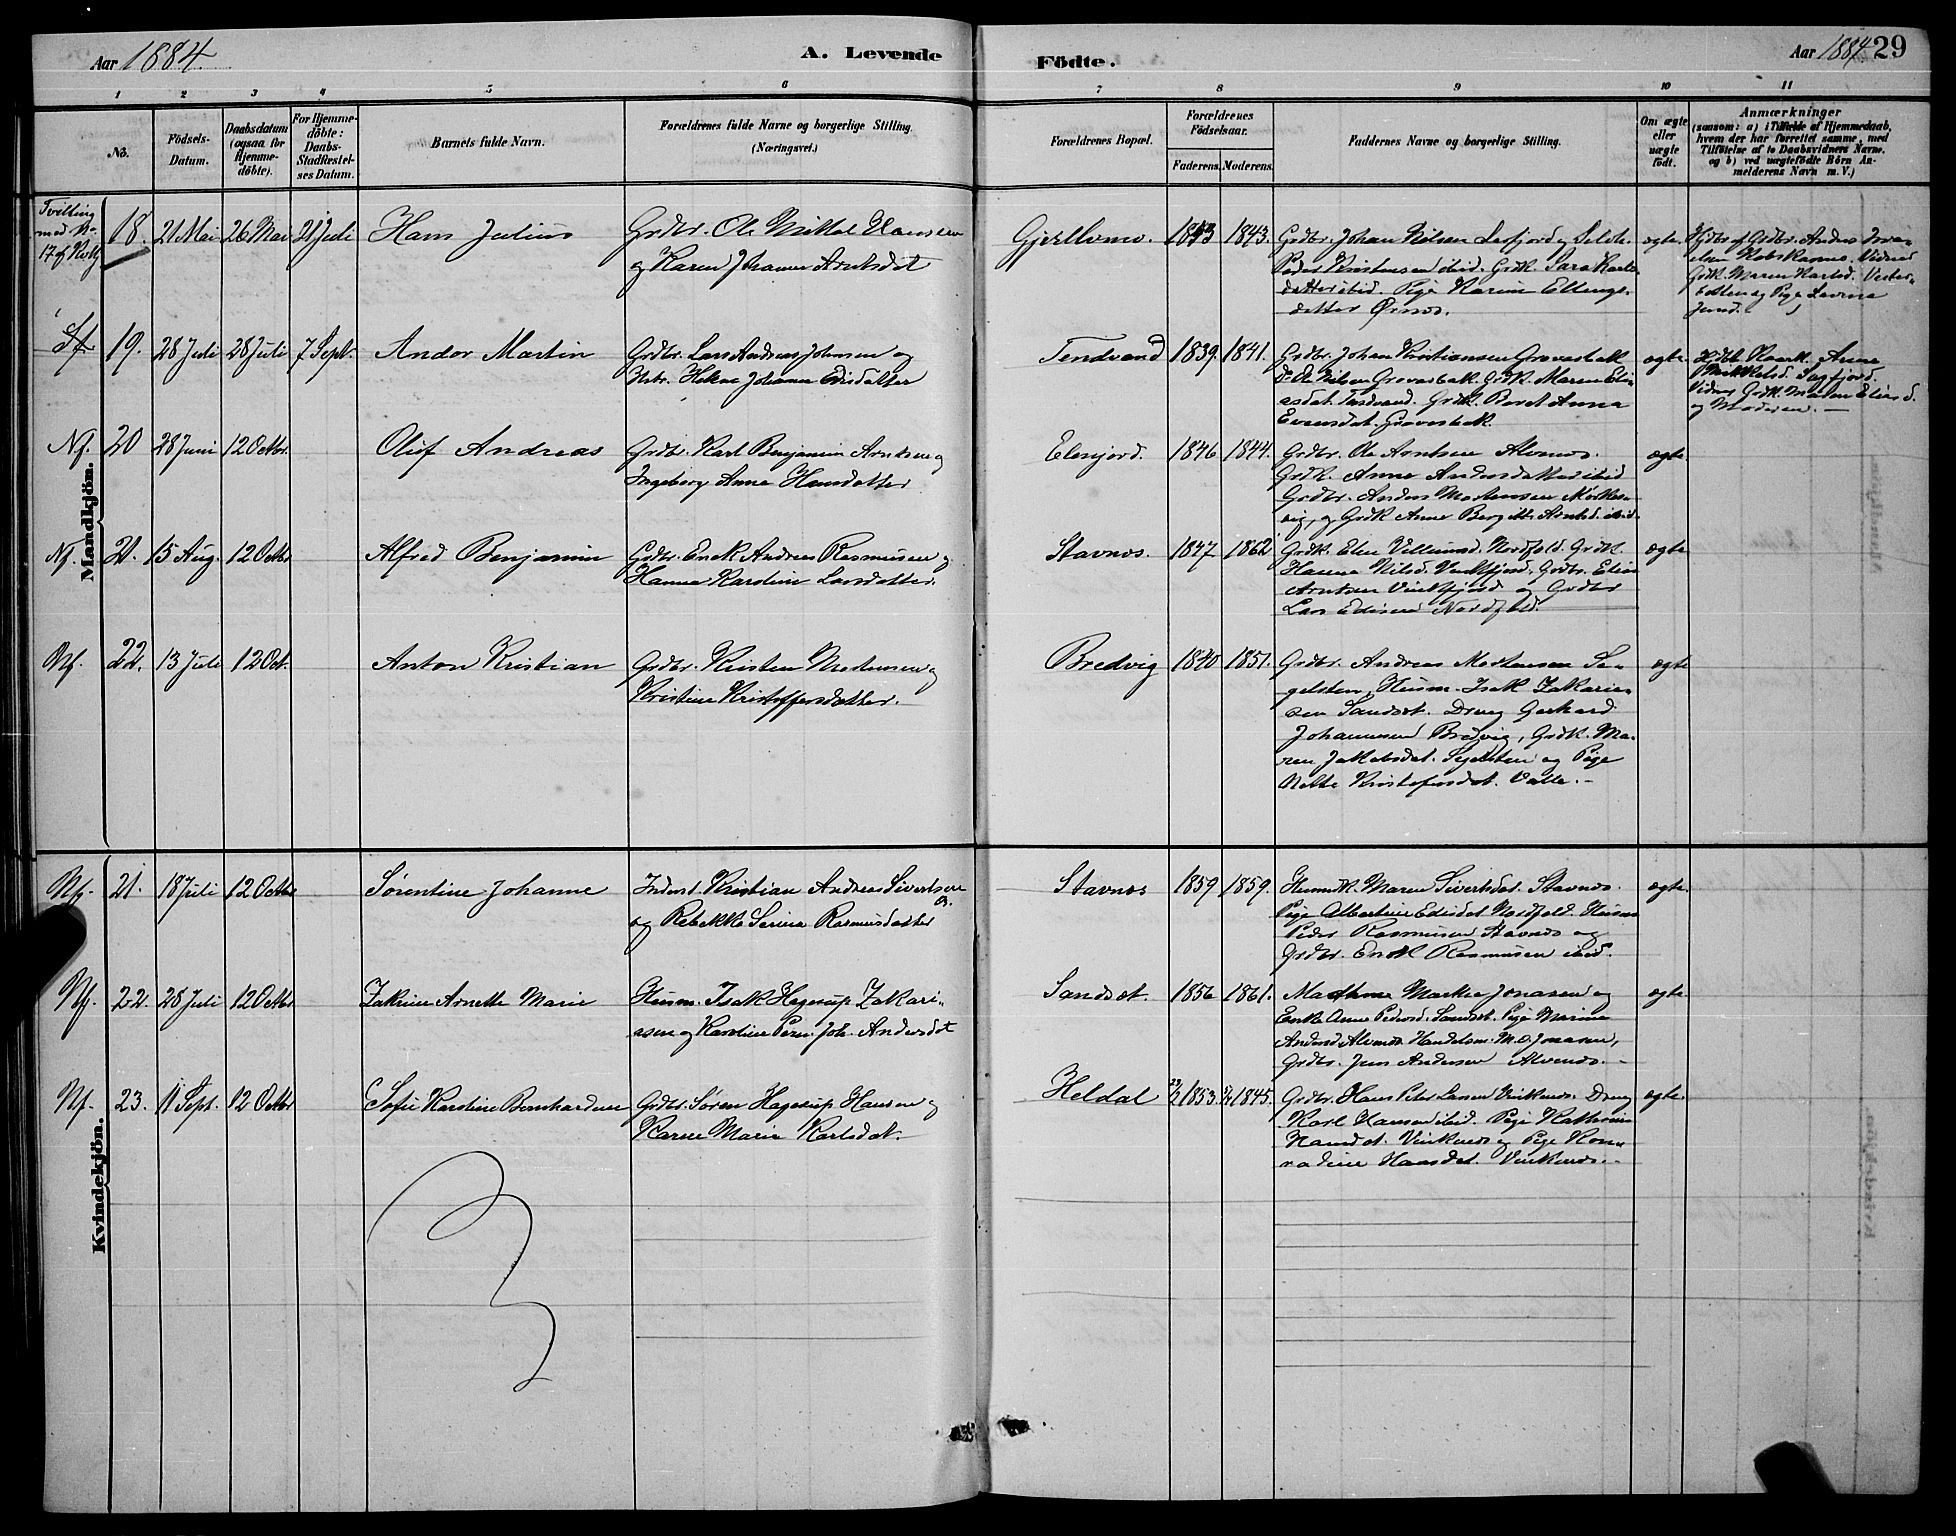 Aar 1884.
A. Levende
Födte.
Aar 1884. 29
1 2 3 4 5 6 7 8 9 10 11
No.
Födsels-
Datum.
Daabsdatum
(ogsaa for
Hjemme-
döbte).
For Hjemme-
döbte:
Daabs-
Stadfæstel-
ses Datum.
Barnets fulde Navn.
Forældrenes fulde Navne og borgerlige Stilling.
(Næringsvei.)
Forældrenes Bopæl.
Forældrenes
Födselsaar.
Faderens. Moderens.
Faddernes Navne og borgerlige Stilling.
Om ægte
eller
uægte
födt.
Anmærkninger
(saasom: a) i Tilfælde af Hjemmedaab,
hvem der har forrettet samme, med
Tilföielse af to Daabsvidners Navne,
og b) ved uægtefödte Börn An-
melderens Navn m. V.)
Mandkjön.
Tvilling
med No
17 af Kvkj
18. 21 Mai 26 Mai 21 Juli Hans Julius
Grdbr. Ole Mikkal Hansen
og Karen Johanna Arntsdat
1853 1843.
Grdbr. Johan Nilsen Leefjord
Peder Kristensen ibid. Grdk. Sara Karls-
datter ibid. Pige Karine Ellings-
datter Örnes.
ægte
Grdk. Maren Karlsd. Vester-
botten og Pige Lavina
19. 28 Juli 28 Juli 7 Sept. Andor Martin
Grdbr. Lars Andreas Johnsen og
Hstr. Helene Johanna Edisdatter
Tendvand 1839. 1841.
Grdbr. Johan Kristiansen Grovasbak
Do Ole Nilsen Grovasbak. Grdk. Maren Eli-
asdat. Tendvand. Grdk. Berit Anna
Evensdat. Grovasbak.
ægte.
Mikkelsd. Sagfjord.
Vidner Grdk. Maren Eliasd.
og Moderen. —
Nf. 20 28 Juni 12 Octbr. Oluf Andreas
Grdbr. Karl Benjamin Arntsen og
Ingeborg Anna Hansdatter
Elvsfjord. 1846 1844.
Grdbr. Ole Arntsen Alvenes.
Grdk. Anne Andersdatter ibid
Grdbr. Anders Mortensen Mörkes-
vig, og Grdk Anne Bergitte Arntsd. ibid
ægte
Nf. 21. 15 Aug. 12 Octbr Alfred Benjamin
Grdbr. Enok Andreas Rasmussen og
Hanna Karoline Larsdatter.
Stavnes. 1847 1862
Grdk. Elen Villumsd. Nordfold. Grdk.
Hasena Nilsd. Vinkfjord. Grdbr. Elias
Arntsen Vinkfjord og Grdbr
Lars Edisen Nordfold.
ægte
Nf. 22. 13 Juli 12 Oct. Anton Kristian
Grdbr. Kristen Mortensen og
Kristine Kristoffersdatter.
Bredvig 1840 1851.
Grdbr. Andreas Mortensen Se-
gelsten, Husm. Isak Zakaria-
sen Sandset. Dreng Gerhard
Johannesen Bredvig, Grdk. Ma-
ren Jakobsdat. Segelsten og Pige
Nelle Kristofersdat. Valle. —
ægte
Kvindekjön.
Nf. 21. 18 Juli 12 Octbr Sörentine Johanne
Inderst Kristian Andreas Sivertsen
og Rebekka Serine Rasmusdatter
Stavnes 1859 1859.
Husmdk. Maren Sivertsdat. Stavnes.
Pige Albertine Edisdat Nordfold. Husm
Peder Rasmussen Stavnes og
Grdbr. Enok Rasmussen ibid.
ægte.
Nf. 22. 28 Juli 12 Octbr Zakrine Arnette Marie
Husm. Isak Hagerup Zakari-
asen og Karoline Peru. Joh. Andersdat
Sandset. 1856 1861.
Enke Anne Pedersd. Sandset. Pige Marine
Andersd Alvenes. Handelsm. M. O. Jonasen,
Grdbr. Jens Andersen Alvenes. —
ægte.
Nf. 23. 11 Sept. 12 Octbr Sofie Karoline Bernhardine
Grdbr. Sören Hagerup Hansen og
Karen Maria Karlsdat.
Heldal 1853. 1845.
Grdbr. Hans Peter Larsen Vinkenes. Dreng
Karl Hansen ibid. Pige Kathrine
Hansdat. Vinkenes og Pige Kon-
radine Hansdat. Vinkenes. —
ægte.